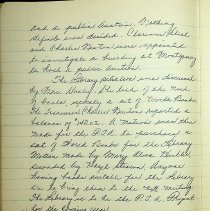 and a public Auction. Nothing
definite was decided. Chairman
and Charles Newton were appointed
to investigate a building at Montgomery
to hold a public Auction.
The Library situation was discussed
by Mrs. Healy. In back of the need
of books, especially a set of World Books.
The Treasurer Charles Newton reported a
balance of A motion was then
made for the P.T.A. to purchase a
set of World Books for the Library.
Motion made by Mary Anne
seconded by Mary Stevens. Anyone
having books suitable for the Library
are to bring them to the next meeting.
The Library is to be the P.T.A. Project
for the coming year.